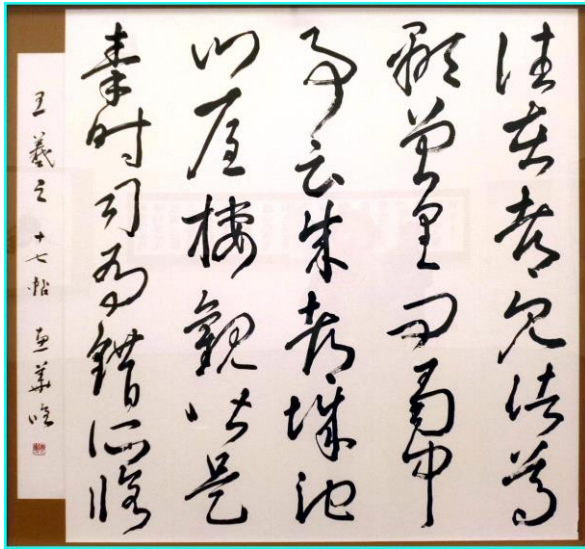 往在都見諸葛
顒曾具問蜀中
事云成都城池
門屋樓觀皆是
秦時司馬錯所脩
王羲之 十七帖 恵華臨